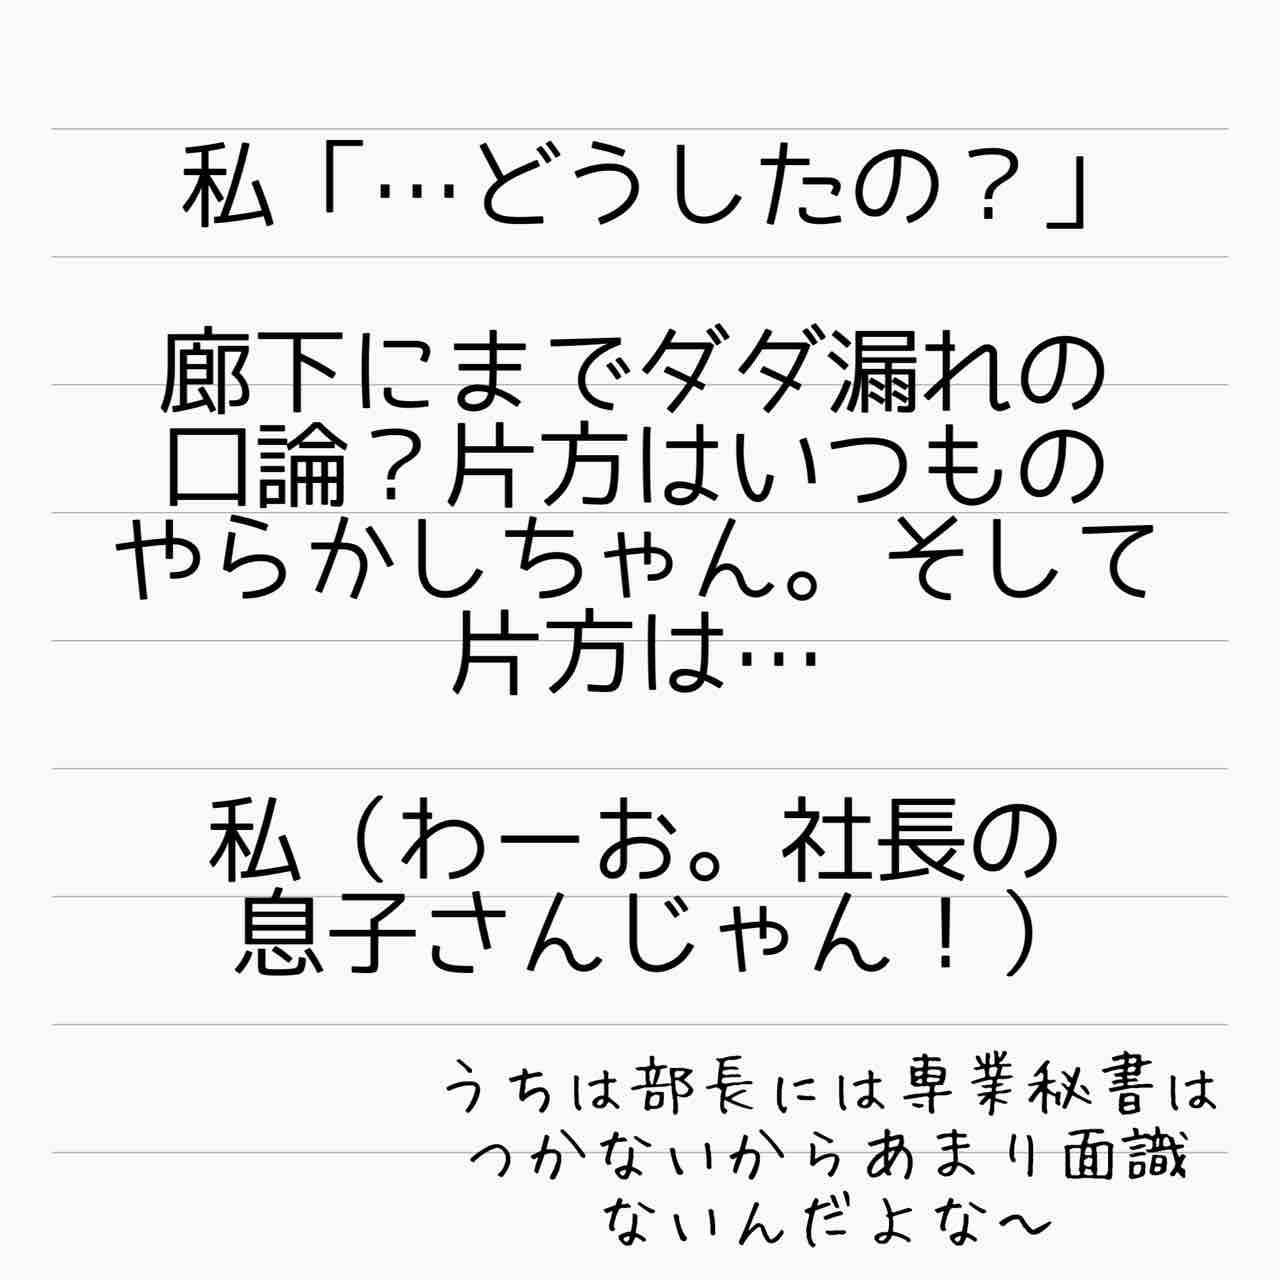 私「…どうしたの？」
廊下にまでダダ漏れの
口論？片方はいつもの
やらかしちゃん。そして
片方は…
私（わーお。社長の
息子さんじゃん！）
うちは部長には専業秘書は
つかないからあまり面識
ないんだよな〜